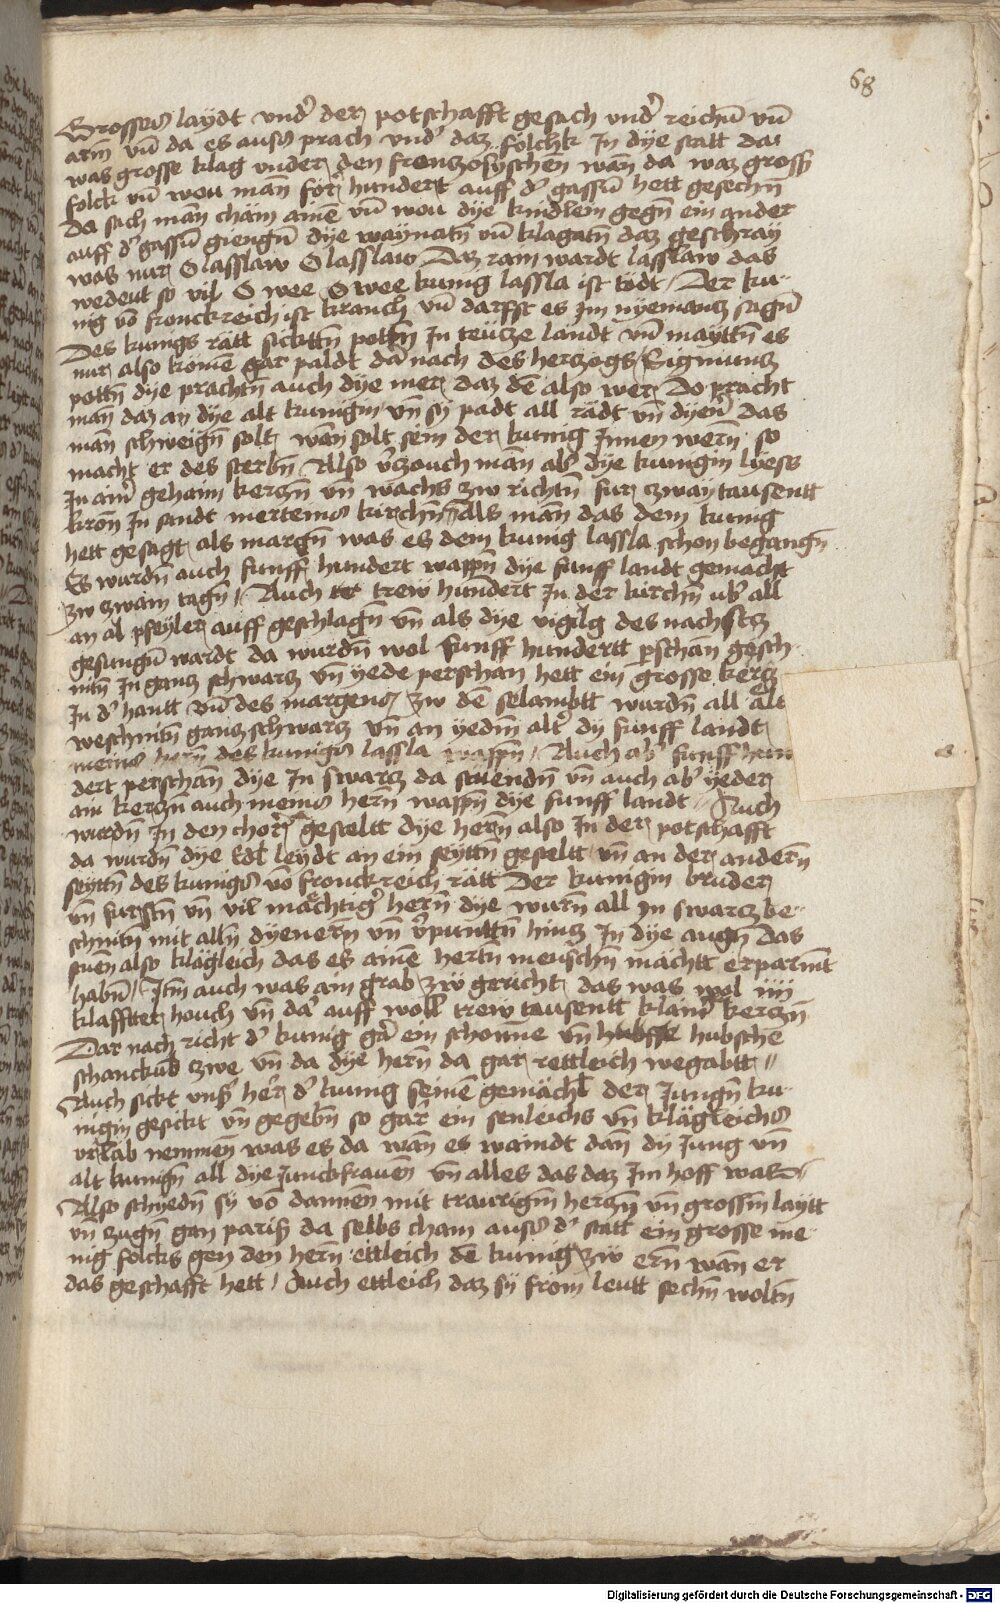 68
Grosses laydt vnd' der potschafft gesach vnd' reichn̄ vn̄
arm̄ vn̄ da es auss prach vnd' daz fölchk In dye statt da
was grosse klag vnder den frenzosyschen wan̄ da waz gross
folck vn̄ wou man for hundert auff d' gassn̄ hett gesechn̄
Da sach man chäm aine vn̄ wou dye kindlein gegn̄ ein ander
auff d' gassn̄ giengn̄ dye waynatn̄ vn̄ klagatn̄ daz geschray
was nur O lasslaw O lasslaw Daz ram wardt lasslaw das
wedeut so vil O wee O wee kunig lassla ist todt / Der ku-
nig vō fronckreich ist kranch vn̄ darfst es im nyemantz sagn̄
Des kunigs rätt sicktn̄ potn̄ In teütze landt vn̄ mayttn̄ es
nur also komē gar paldt dar nach des herzogs Sigmuntz
pottn̄ dye prachtn̄ auch dye mer daz dē also wer Do pracht
man daz an dye alt kunigin vn̄ sy padt all rädt vn̄ dyen' Das
man schweign̄ solt wan̄ solt sein der kunig Innen wern̄ so
macht er des sterbn̄ Also v'zouch man ab' dye kunigin lyess
In ain' gehaim kerzn̄ vn̄ wachs zw richtn̄ fur zway tausentt
kron̄ In sandt mertenns kirchn̄ Als man das dem kunig
hett gesagt als margn̄ was es dem kunig lassla schon begangn̄
Es wurdn̄ auch funff hundert wappn̄ dye funff landt gemacht
zw zwain tagn̄ / Auch trew hundert In der kirchn̄ vb' all
an al pfeyler auff geschlagn̄ vn̄ als dye vigilg des nachstz
gesungn̄ wardt da wurdn̄ wol funff hundertt p'schan gesch-
nitn̄ In ganz schwarz vn̄ yede perschan hett ein grosse kerz
In d' hantt vn̄ des margens zw dē selambtt wurdn̄ all alt
weschnitn̄ ganz schwarz vn̄ an yedm̄ alt' dy funff landt
meins hern̄ des kunigs lassla wappn̄ / Auch ab' funff hun
dert perschan dye In swarz da stuendn̄ vn̄ auch ab' yeder
ain kerzn̄ auch meins hern̄ wappn̄ dye funff landt / Auch
wurdn̄ In den chor gesteltt dye hern̄ also In der potschafft
da wurdn̄ dye Edl leydt an ein seyttn̄ gesteltt vn̄ an der andern̄
seyttn̄ des kunigs vō fronckreich rätt Der kunigin bruder
vn̄ furstn̄ vn̄ vil mächtig' hern̄ dye wurn̄ all In swarz be-
schnitn̄ mit alln̄ dyenern̄ vn̄ v'punttn̄ hinz In dye augn̄ das
stuēn also klägleich das es aine hertn̄ menschn̄ machtt erparmt
habn̄ / Itm̄ auch was am grab zw gericht das was wol iiij
klaffter houch vn̄ dar auff woll trew tausentt klain' kerzn̄
Dar nach richt d' kunig gar ein schonne vn̄ hubsche
schanckub zwe vn̄ da dye hern̄ da gar rettleich wegabtt //
Auch sickt vns' her d' kunig seinē gemächl der Jungn̄ ku-
nigin gesickt vn̄ gegebn̄ so gar ein senleichs vn̄ klägleichs
vrlab nemmen was es da wan̄ es waindt dan̄ dy Jung vn̄
alt kunign̄ all dye Junckfrauen vn̄ alles das daz im hoff was
Also schyedn̄ sy vō dannen mit traurign̄ herzn̄ vn̄ grossm̄ laytt
vn̄ zugn̄ gan pariss da selbs cham auss d' statt ein grosse me-
nig folcks gen den hern ettleich dē kunig zw ern̄ wan̄ er
das geschafft hett / Auch ettleich daz sy from leutt sechn̄ woltn̄
Digitalisierung gefördert durch die Deutsche Forschungsgemeinschaft - DFG